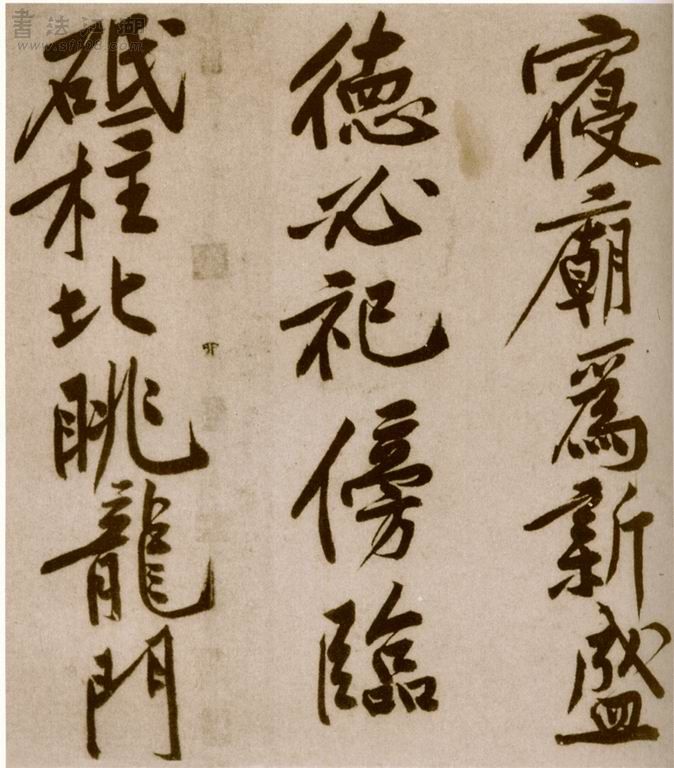 寝廟爲新盛
德必祀傍臨
砥柱北眺龍門
書法江湖
www.sf108.com